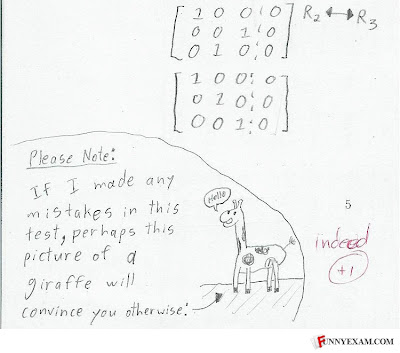 [ 1 0 0 ¦ 0 ] R2 ↔ R3
[ 0 0 1 ¦ 0 ]
[ 0 1 0 ¦ 0 ]
[ 1 0 0 ¦ 0 ]
[ 0 1 0 ¦ 0 ]
[ 0 0 1 ¦ 0 ]
Please Note:
If I made any
mistakes in this
test, perhaps this
picture of a
giraffe will
convince you otherwise:
Hello
5
indeed
+1
FUNNYEXAM.COM